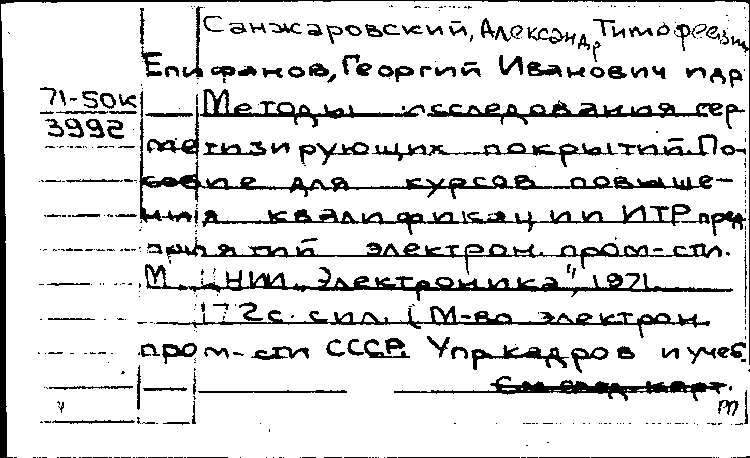 Санжаровский, Александр Тимофеевич
Епифанов, Георгий Иванович и др
71-50к
3992
Методы исследования гер
метизирующих покрытий. По-
собие для курсов повыше-
ния квалификации ИТР пред
приятий электрон. пром-сти.
М. ЦНИИ "Электроника", 1971
172 с. с ил. (М-во электрон
пром-сти СССР. Упр кадров и учеб.
См след. карт.
РП